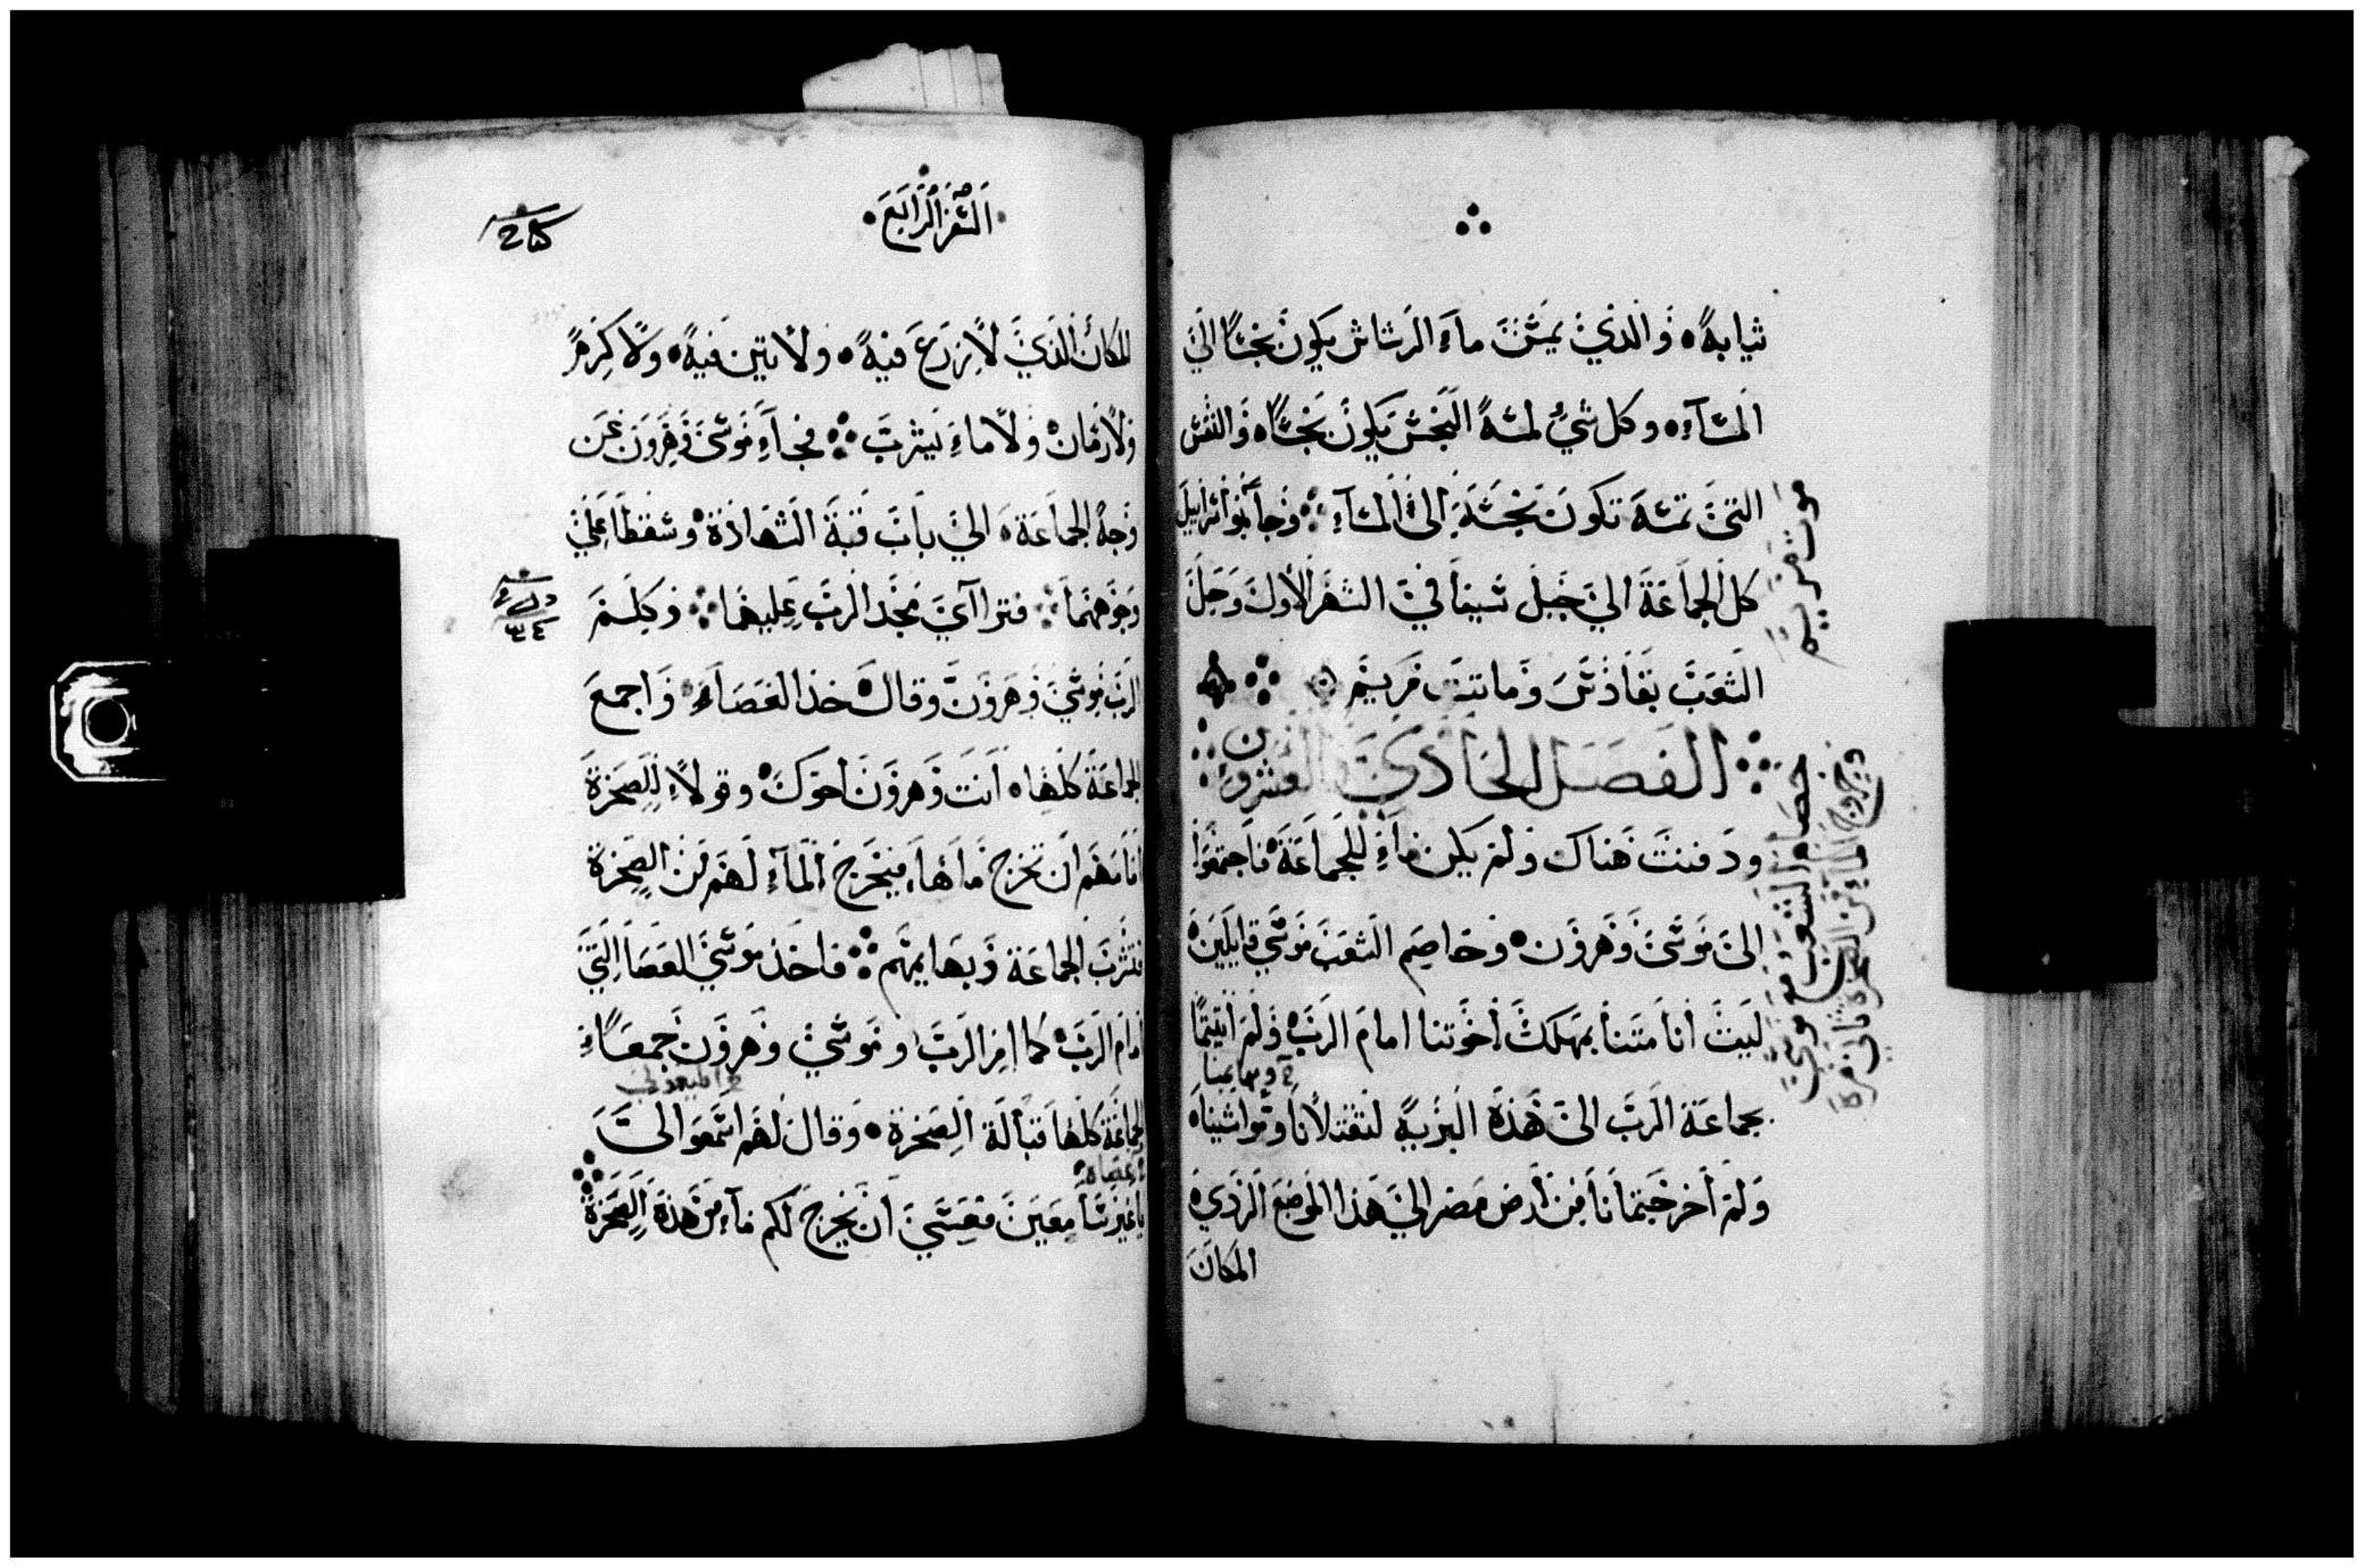 ثيابه ه والذي يمس ماء الرشاش يكون نجسًا الي
المسآء ه وكل شيء لمسه النجس يكون نجسًا ه والنفس
التي تمسه تكون نجسه الى المسآء وجا بنوا اسراييل
كل الجماعة الي جبل سينا في الشهر الاول وحل
الشعب بقادس وماتت مريم
الفصل الحادي والعشرون
ودفنت هناك ولم يكن ماء للجماعة فاجتمعوا
الى موسى وهرون ه وخاصم الشعب موسي قايلين ه
ليت أنا متنا بمهلك أخوتنا امام الرب ه ولم اتيتما
وبهايمنا
بجماعة الرب الى هذه البريه لتقتلانا ومواشينا ه
ولم أخرجتمانا من أرض مصر الي هذا الموضع الردي ه
المكان
موت مريم
خصام الشعب مع موسي
وخروج الماء من الصخرة ثاني مرة
السفر الرابع
المكان الذي لا يزرع فيه ه ولا تين فيه ه ولا كرم
ولا رمان ه ولا ماء يشرب فجآء موسى وهرون عن
وجه الجماعة ه الي باب قبة الشهادة وسقطا علي
وجوههما فتراآي مجد الرب عليهما وكلم
الرب موسي وهرون وقال ه خذ العصاء واجمع
الجماعة كلها ه انت وهرون أخوك ه وقولا للصخرة
أمامهم ان تخرج مآها فيخرج المآء لهم من الصخرة
فتشرب الجماعة وبهايمهم فاخذ موسي العصا التي
أمام الرب ه كما امر الرب وموسي وهرون جمعا
الجماعة كلها قبالة الصخرة ه وقال لهم اسمعوا الى
يا غير معين فعسي ان يخرج لكم مآء من هذه الصخرة